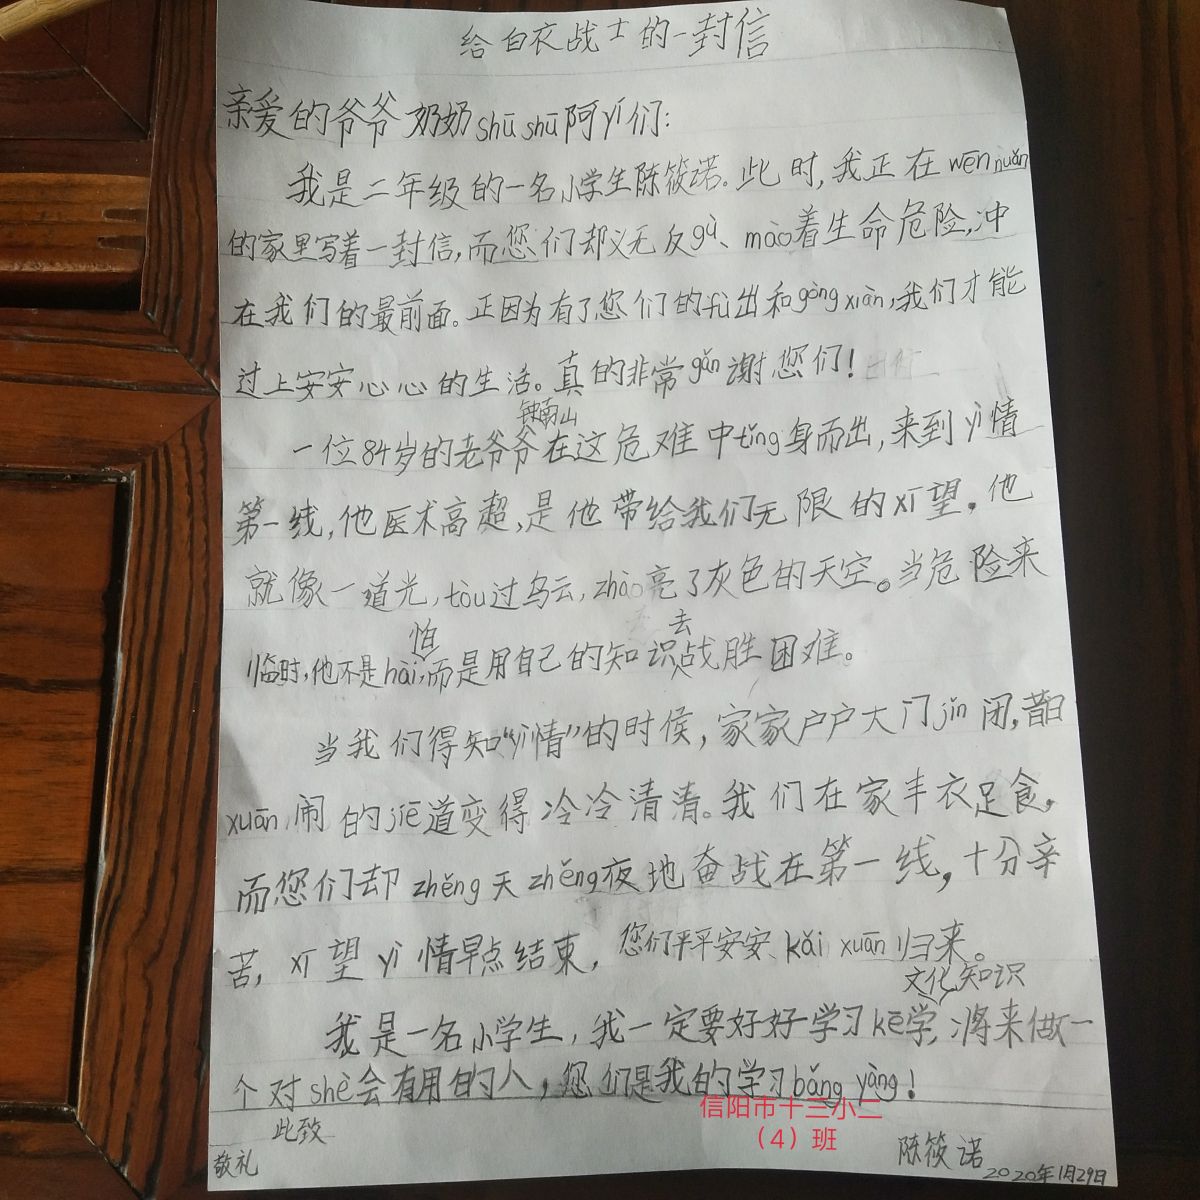 给白衣战士的一封信
亲爱的爷爷奶奶shū shū阿yí们：
我是二年级的一名小学生陈筱诺。此时，我正在wēn nuǎn
的家里写着一封信，而您们却义无反gù、mào着生命危险，冲
在我们的最前面。正因为有了您们的fù出和gòng xiàn，我们才能
过上安安心心的生活。真的非常gǎn谢您们！
钟南山
一位84岁的老爷爷在这危难中tǐng身而出，来到yì情
第一线，他医术高超，是他带给我们无限的xī望。他
就像一道光，tòu过乌云，zhào亮了灰色的天空。当危险来
怕 去
临时，他不是hài，而是用自己的知识战胜困难。
当我们得知“yì情”的时候，家家户户大门jǐn闭，昔日
xuān闹的jiē道变得冷冷清清。我们在家丰衣足食，
而您们却zhěng天zhěng夜地奋战在第一线，十分辛
苦，xī望yì情早点结束，您们平平安安、kǎi xuán归来。
文化知识
我是一名小学生，我一定要好好学习kē学，将来做一
个对shè会有用的人，您们是我的学习bǎng yàng！
此致
敬礼
信阳市十三小二
（4）班
陈筱诺
2020年1月29日